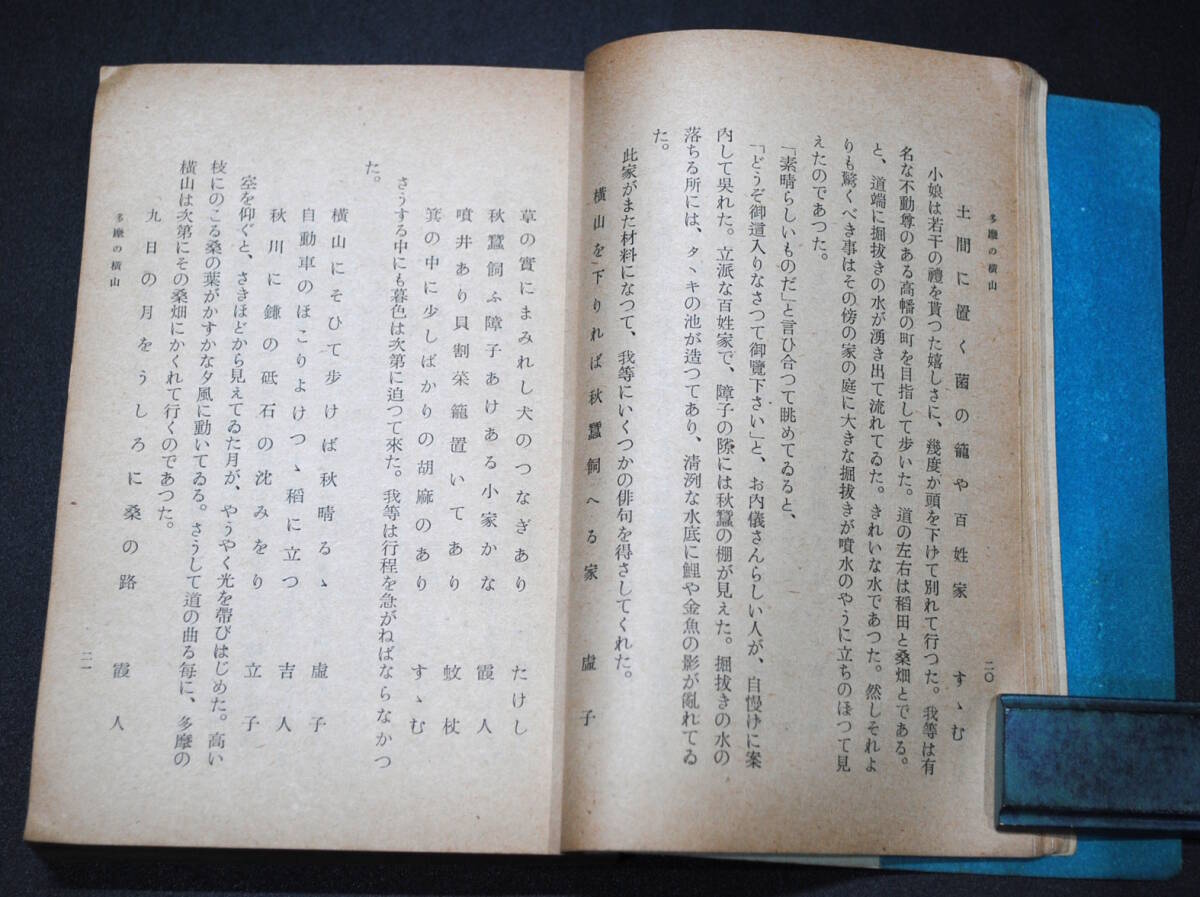 多摩の横山
二〇
土間に置く菌の籠や百姓家　すゝむ
小娘は若干の禮を貰つた嬉しさに、幾度か頭を下げて別れて行つた。我等は有
名な不動尊のある高幡の町を目指して歩いた。道の左右は稻田と桑畑とである。
と、道端に掘抜きの水が湧き出て流れてゐた。きれいな水であつた。然しそれよ
りも驚くべき事はその傍の家の庭に大きな掘抜きが噴水のやうに立ちのぼつて見
えたのであつた。
「素晴らしいものだ」と言ひ合つて眺めてゐると、
「どうぞ御這入りなさつて御覽下さい」と、お内儀さんらしい人が、自慢げに案
内して呉れた。立派な百姓家で、障子の隙には秋蠶の棚が見えた。掘抜きの水の
落ちる所には、タヽキの池が造つてあり、清冽な水底に鯉や金魚の影が亂れてゐ
た。
此家がまた材料になつて、我等にいくつかの俳句を得さしてくれた。
横山を下りれば秋蠶飼へる家　虛子
草の實にまみれし犬のつなぎあり　たけし
秋蠶飼ふ障子あけある小家かな　霞人
噴井あり貝割菜籠置いてあり　蚊杖
箕の中に少しばかりの胡麻のあり　すゝむ
さうする中にも暮色は次第に迫つて來た。我等は行程を急がねばならなかつ
た。
横山にそひて歩けば秋晴るゝ　虛子
自動車のほこりよけつゝ稻に立つ　吉人
秋川に鎌の砥石の沈みをり　立子
空を仰ぐと、さきほどから見えてゐた月が、やうやく光を帶びはじめた。高い
枝にのこる桑の葉がかすかな夕風に動いてゐる。さうして道の曲る每に、多摩の
横山は次第にその桑畑にかくれて行くのであつた。
九日の月をうしろに桑の路　霞人
多摩の横山
二一